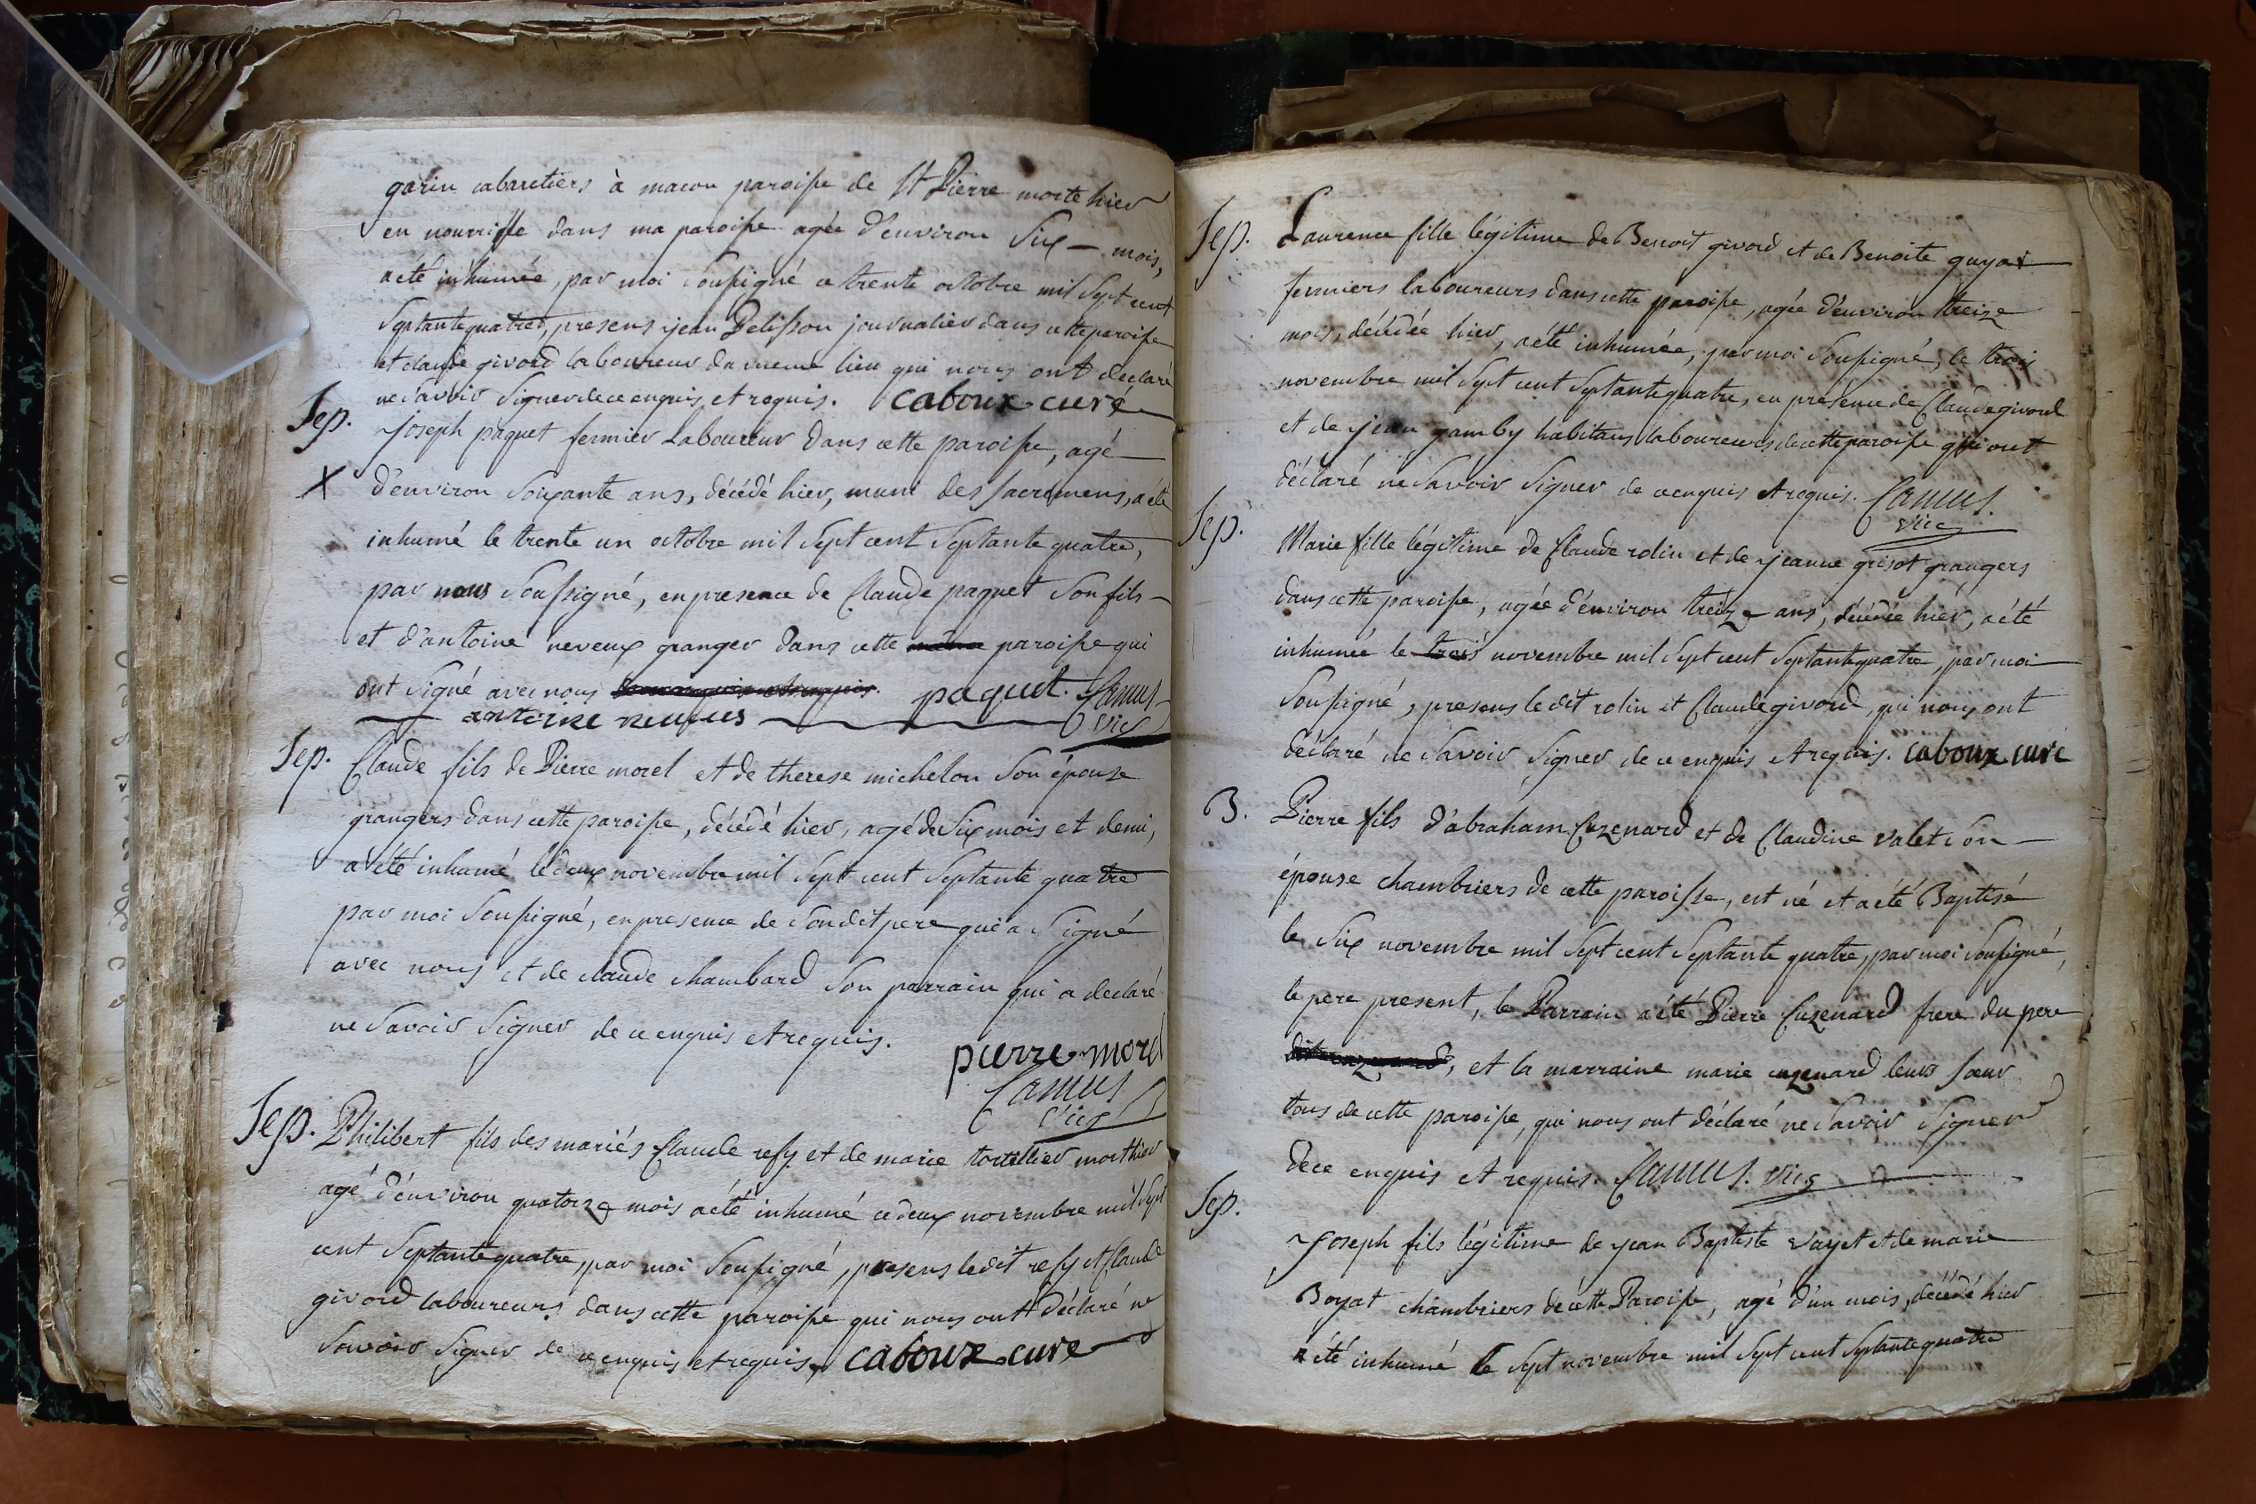 garin cabaretiers à macon paroisse de St Pierre morte hier
en nourrisse dans ma paroisse agée d'environ Six - mois,
a été inhumée, par moi soussigné ce trente octobre mil Sept cent
Septante quatre, presens jean Pelisson journalier dans cette paroisse
et claude givord laboureur du meme lieu qui nous ont declaré
ne Savoir Signer de ce enquis et requis. caboux curé
Sep. Joseph paquet fermier Laboureur dans cette paroisse, agé
X d'environ Soixante ans, décédé hier, muni des Sacremens, a été
inhumé le trente un octobre mil Sept cent Septante quatre,
par nous Soussigné, en presence de Claude paquet Son fils
et d'antoine neveux granger dans cette paroisse qui
ont Signé avec nous paquet. Camus
antoine neuues vic
Sep. Claude fils de Pierre morel et de therese michelon Son épouse
grangers dans cette paroisse, décédé hier, agé de Six mois et demi,
a été inhumé le deux novembre mil Sept cent Septante quatre
par moi Soussigné, en presence de Son dit pere qui a Signé
avec nous et de claude chambard Son parrain qui a declaré
ne Savoir Signer de ce enquis et requis.
pierre morel
Camus
vic
Sep. Philibert fils des mariés Claude refy et de marie tortellier mort hier
agé d'environ quatorze mois a été inhumé ce deux novembre mil Sept
cent Septante quatre, par moi Soussigné, presens le dit refy et Claude
givord laboureurs dans cette paroisse qui nous ont déclaré ne
Savoir Signer de ce enquis et requis, caboux curé
Sep. Laurence fille légitime de Benoit givord et de Benoite guyat
fermiers laboureurs dans cette paroisse, agée d'environ treize
mois, décédée hier, a été inhumée, par moi Soussigné, le trois
novembre mil Sept cent Septante quatre, en présence de Claude givord
et de jean gamby habitans laboureurs de cette paroisse qui ont
déclaré ne Savoir Signer de ce enquis et requis. Camus.
vic
Sep. Marie fille légitime de Claude rolin et de jeanne grisot grangers
dans cette paroisse, agée d'environ treize ans, décédée hier, a été
inhumée le trois novembre mil Sept cent Septante quatre, par moi
Soussigné, presens le dit rolin et Claude givord, qui nous ont
déclaré ne Savoir Signer de ce enquis et requis. caboux curé
B. Pierre fils d'abraham Cuzenard et de Claudine valet Son
épouse chambriers de cette paroisse, est né et a été Baptisé
le Six novembre mil Sept cent Septante quatre, par moi Soussigné,
le pere present, le Parrain a été Pierre Cuzenard frere du pere
, et la marraine marie cuzenard leur Sœur
tous de cette paroisse, qui nous ont déclaré ne Savoir Signer
de ce enquis et requis. Camus. vic
Sep. Joseph fils légitime de jean Baptiste vayet et de marie
Boyat chambriers de cette Paroisse, agé d'un mois, décédé hier
a été inhumé le Sept novembre mil Sept cent Septante quatre